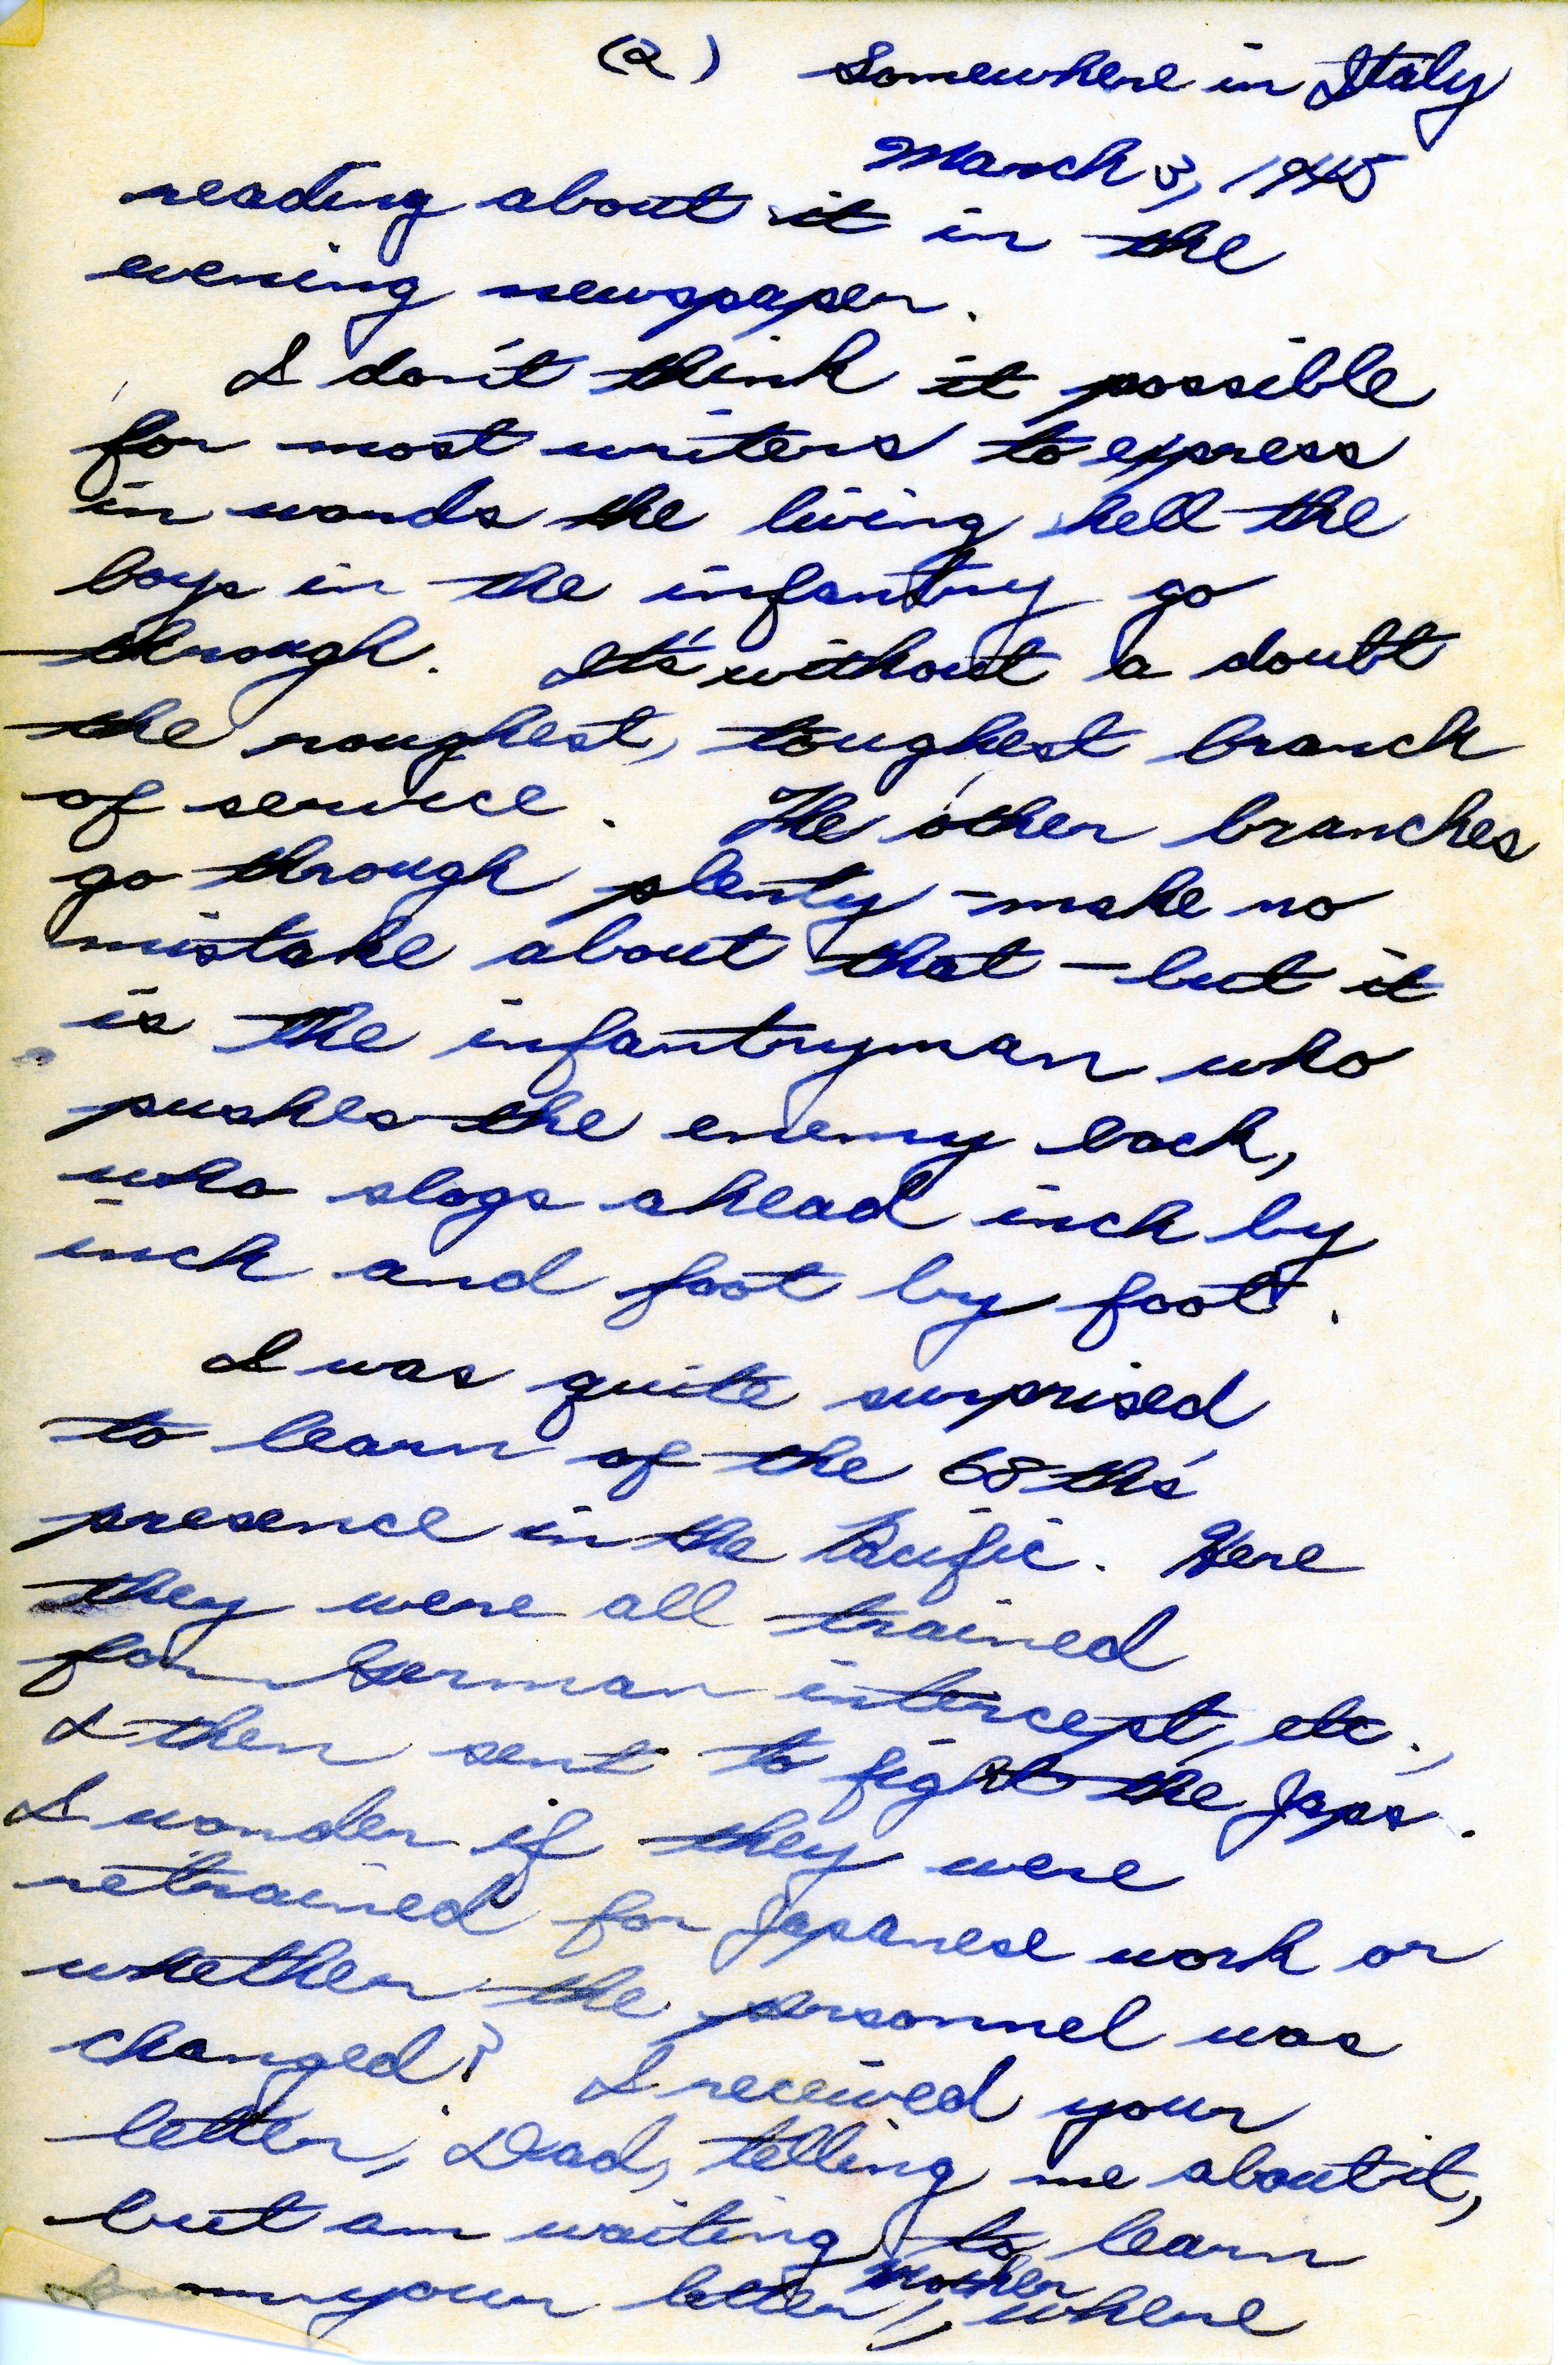 (2) Somewhere in Italy
March 3, 1945
reading about it in the
evening newspaper.
I don't think it possible
for most writers to express
in words the living hell the
boys in the infantry go
through. It's without a doubt
the roughest, toughest branch
of service. The other branches
go through plenty - make no
mistake about that - but it
is the infantryman who
pushes the enemy back,
who slogs ahead inch by
inch and foot by foot.
I was quite surprised
to learn of the 68th's
presence in the Pacific. Here
they were all trained
for German intercept, etc.,
& then sent to fight the Japs.
I wonder if they were
retrained for Japanese work or
whether the personnel was
changed? I received your
letter, Dad, telling me about it,
but am waiting to learn
from your letter, Mother, where